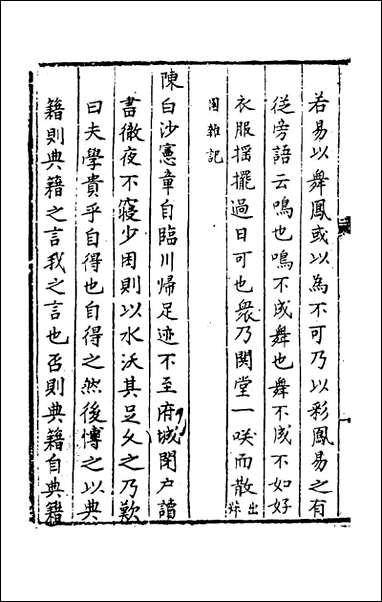 若易以舞鳳或以為不可乃以彩鳳易之有
從旁語云鳴也鳴不成舞也舞不成不如好
衣服揺擺過日可也衆乃閧堂一咲而散出
園雜記
陳白沙憲章自臨川歸足迹不至府城閉户讀
書徹夜不寢少困則以水沃其足久之乃歎
曰夫學貴乎自得也自得之然後博之以典
籍則典籍之言我之言也否則典籍自典籍